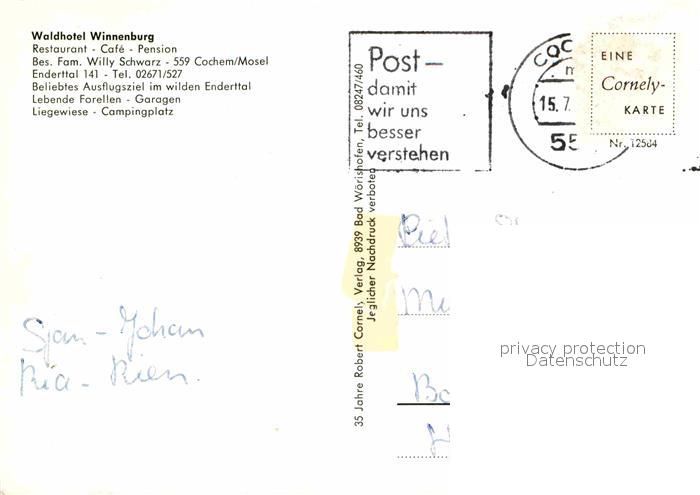 Waldhotel Winnenburg
Restaurant - Café - Pension
Bes. Fam. Willy Schwarz - 559 Cochem/Mosel
Enderttal 141 - Tel. 02671/527
Beliebtes Ausflugsziel im wilden Enderttal
Lebende Forellen - Garagen
Liegewiese - Campingplatz
Post-
damit
wir uns
besser
verstehen
COC
15.7.
55
EINE
Cornely-
KARTE
Nr. 12584
35 Jahre Robert Cornely Verlag, 8939 Bad Wörishofen, Tel. 08247/460
Jeglicher Nachdruck verboten
Sjan - Johan
Ria - Rien.
privacy protection
Datenschutz